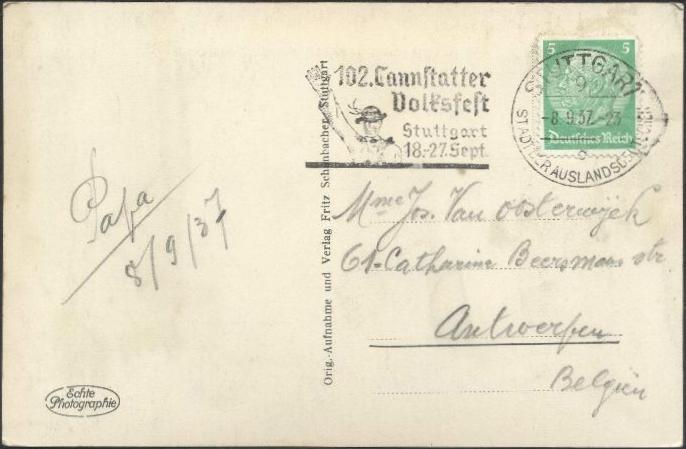 102. Cannstatter
Volksfest
Stuttgart
18.-27. Sept.
5 5
Deutsches Reich
STUTTGART
9
-8.9.37.-23
STADT DER AUSLANDSDEUTSCHEN
Papa
8/9/37
Orig.-Aufnahme und Verlag Fritz Schönbacher, Stuttgart
Mme Jos. Van Oosterwijck
61-Catharina Beersmans str
Antwerpen
Belgien
Echte
Photographie